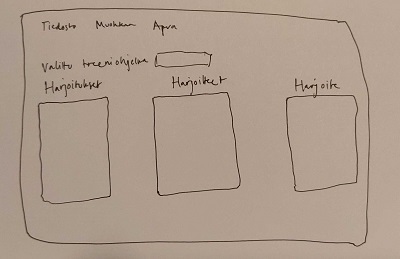 Tiedosto Muokkaa Apua
Valittu treeniohjelma
Harjoitukset Harjoitteet Harjoite